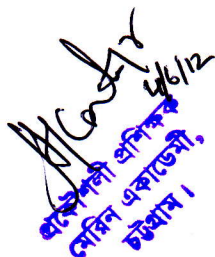 4/6/12
প্রকৌশলী প্রশিক্ষক
মেরিন একাডেমী,
চট্টগ্রাম।